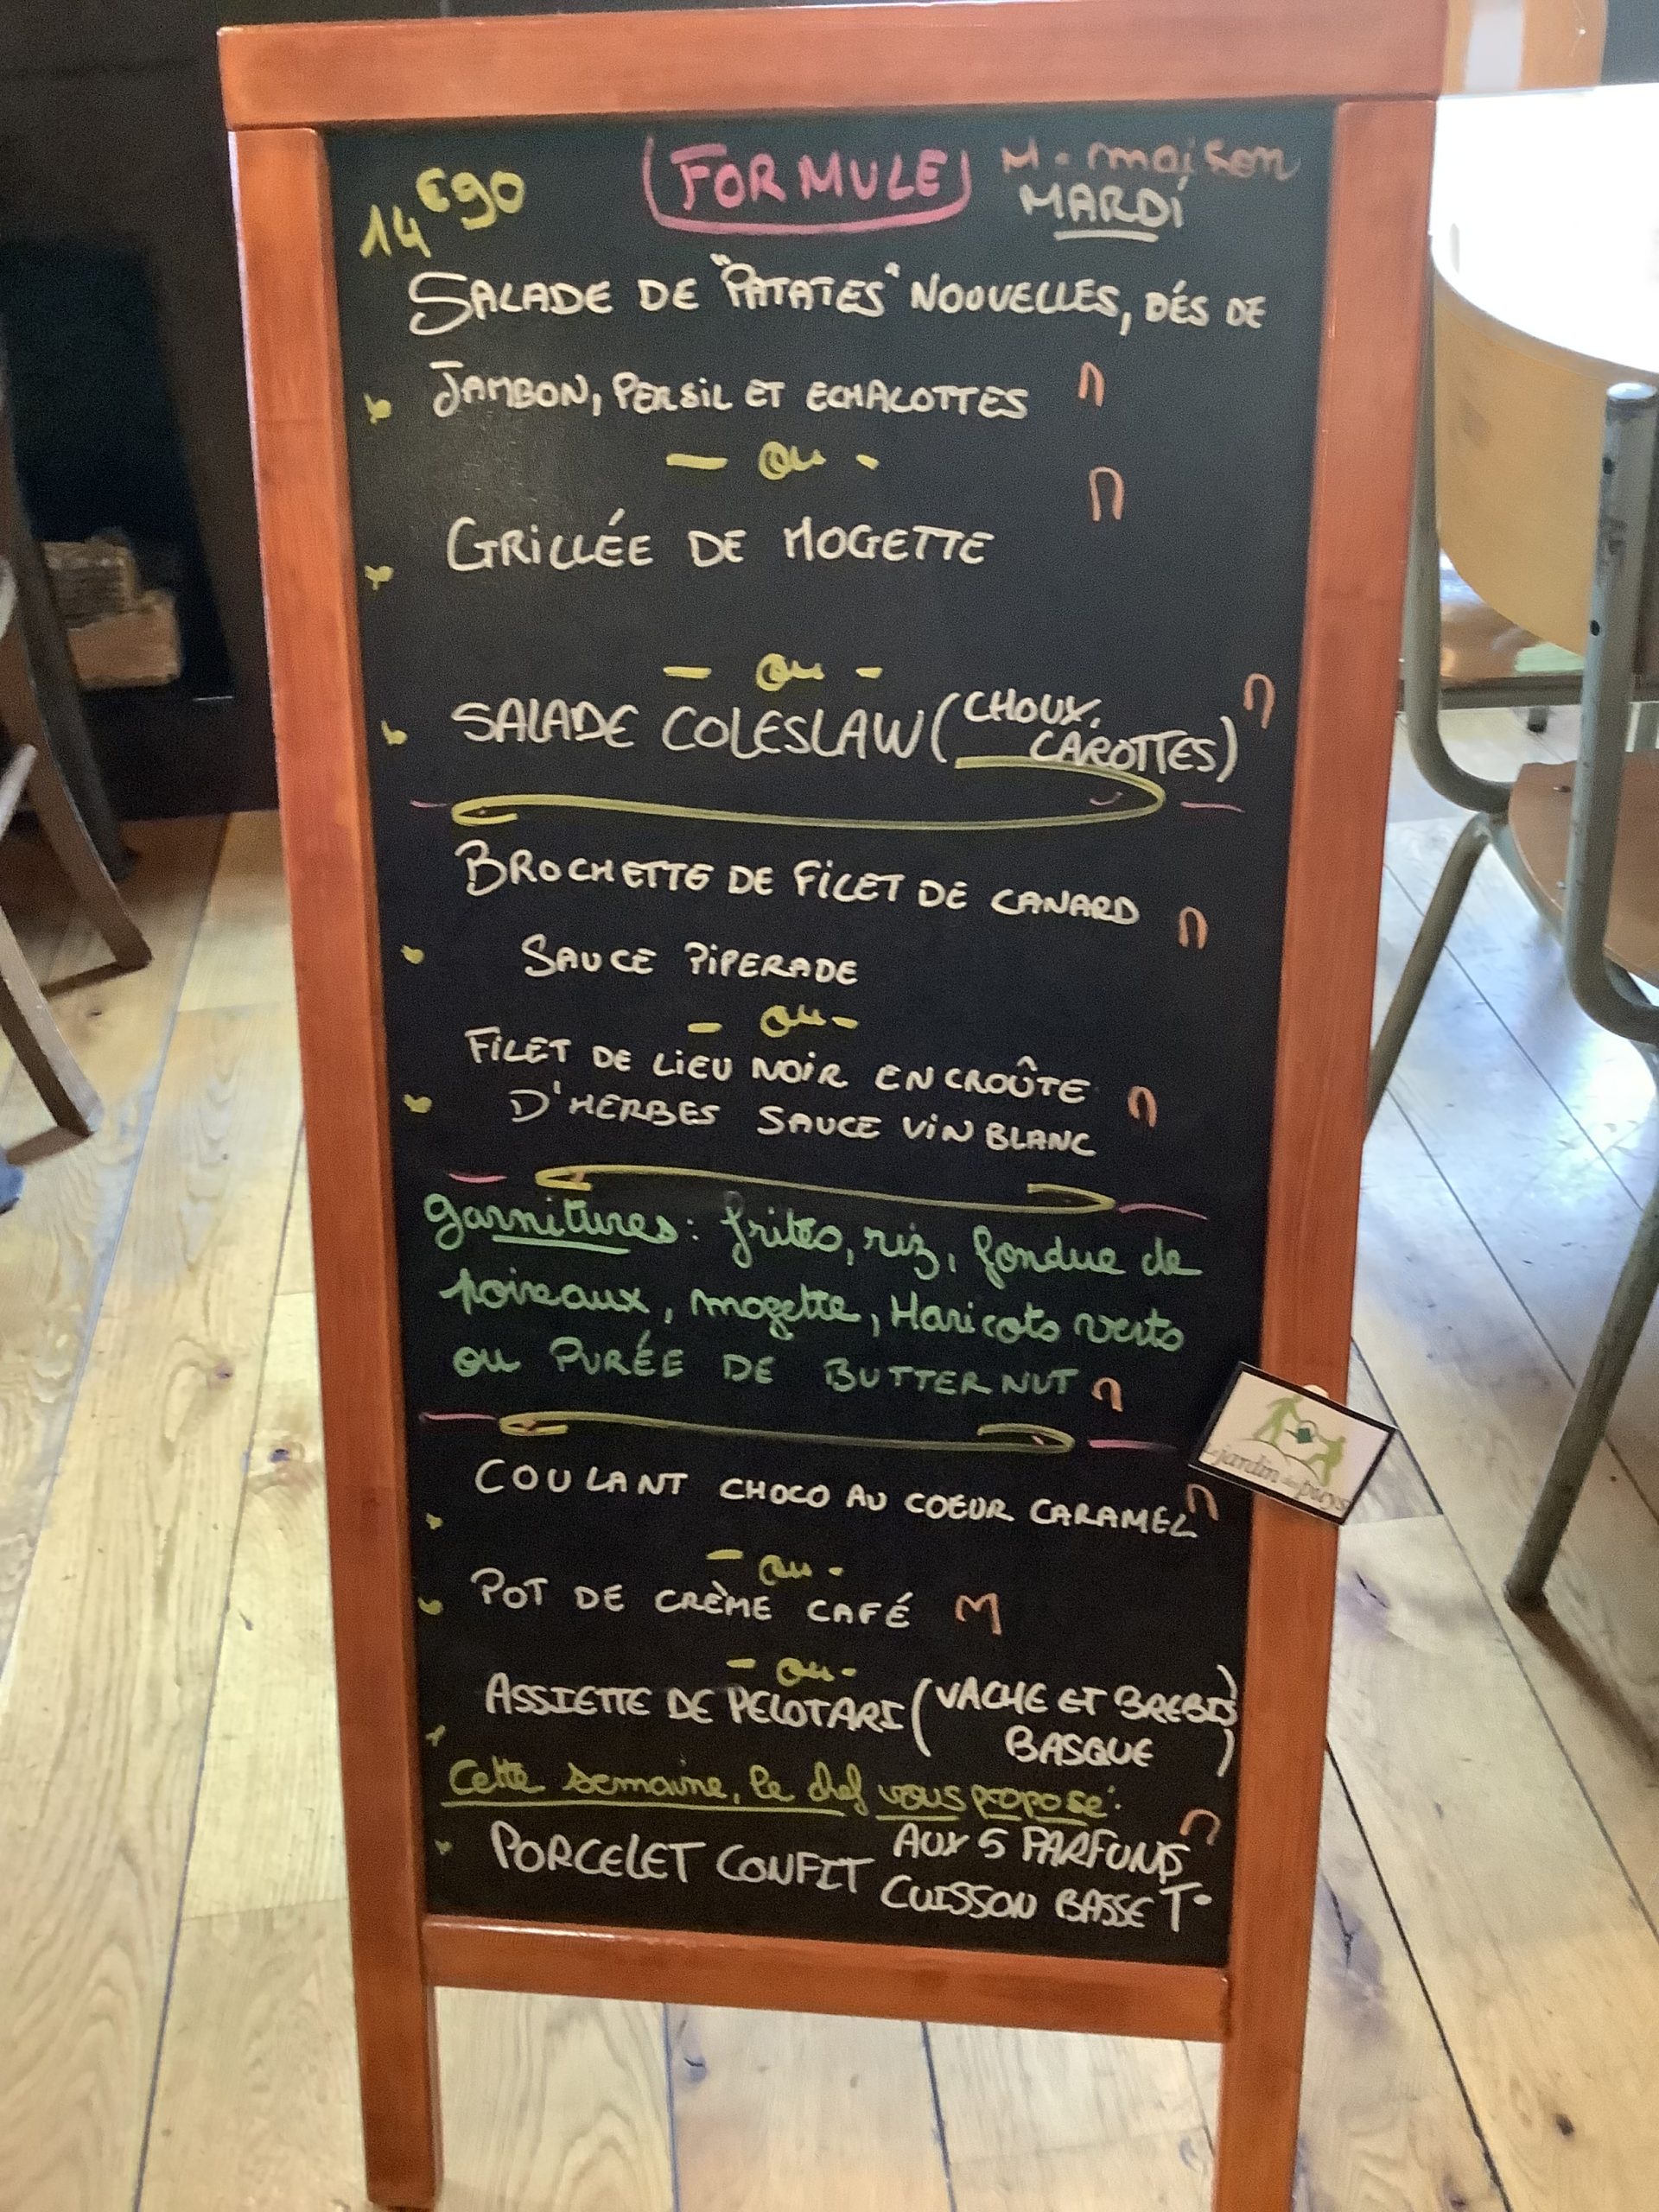 14€90
FORMULE
M = maison
MARDI
SALADE DE "PATATES" NOUVELLES, DÉS DE
JAMBON, PERSIL ET ECHALOTTES M
- ou -
GRILLÉE DE MOGETTE M
- ou -
SALADE COLESLAW (CHOUX,
CAROTTES) M
BROCHETTE DE FILET DE CANARD M
SAUCE PIPERADE
- ou -
FILET DE LIEU NOIR EN CROÛTE
D'HERBES SAUCE VIN BLANC M
garnitures : frites, riz, fondue de
poireaux, mogette, Haricots verts
ou PURÉE DE BUTTERNUT M
COULANT CHOCO AU COEUR CARAMEL M
- ou -
POT DE CRÈME CAFÉ M
- ou -
ASSIETTE DE PELOTARI (VACHE ET BREBIS
BASQUE)
Cette semaine, le chef vous propose :
PORCELET CONFIT AUX 5 PARFUMS M
CUISSON BASSE T°
jardin des puys